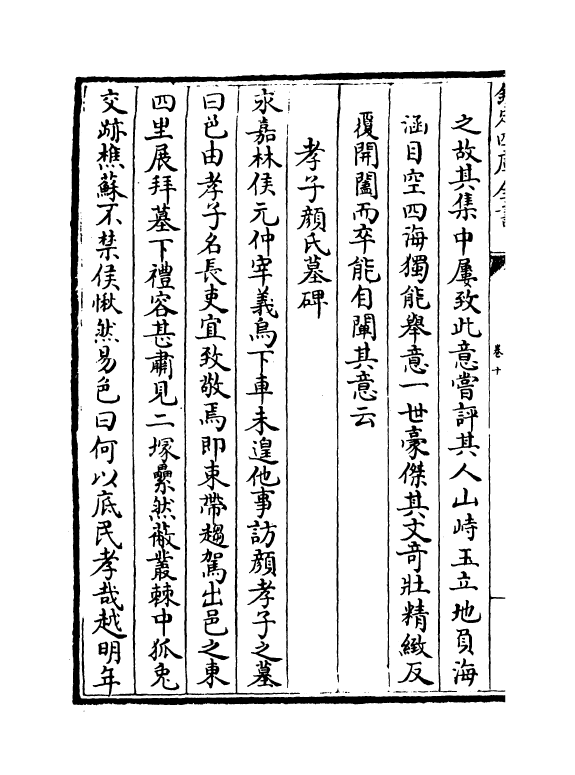 欽定四庫全書
卷十
之故其集中屢致此意嘗評其人山峙玉立地負海
涵目空四海獨能舉意一世豪傑其文奇壯精緻反
覆開闔而卒能自闡其意云
孝子顏氏墓碑
永嘉林侯元仲宰義烏下車未遑他事訪顏孝子之墓
曰邑由孝子名長吏宜致敬焉即束帶趨駕出邑之東
四里展拜墓下禮容甚肅見二塚纍然蔽叢棘中狐兔
交跡樵蘇不禁侯愀然易色曰何以底民孝哉越明年